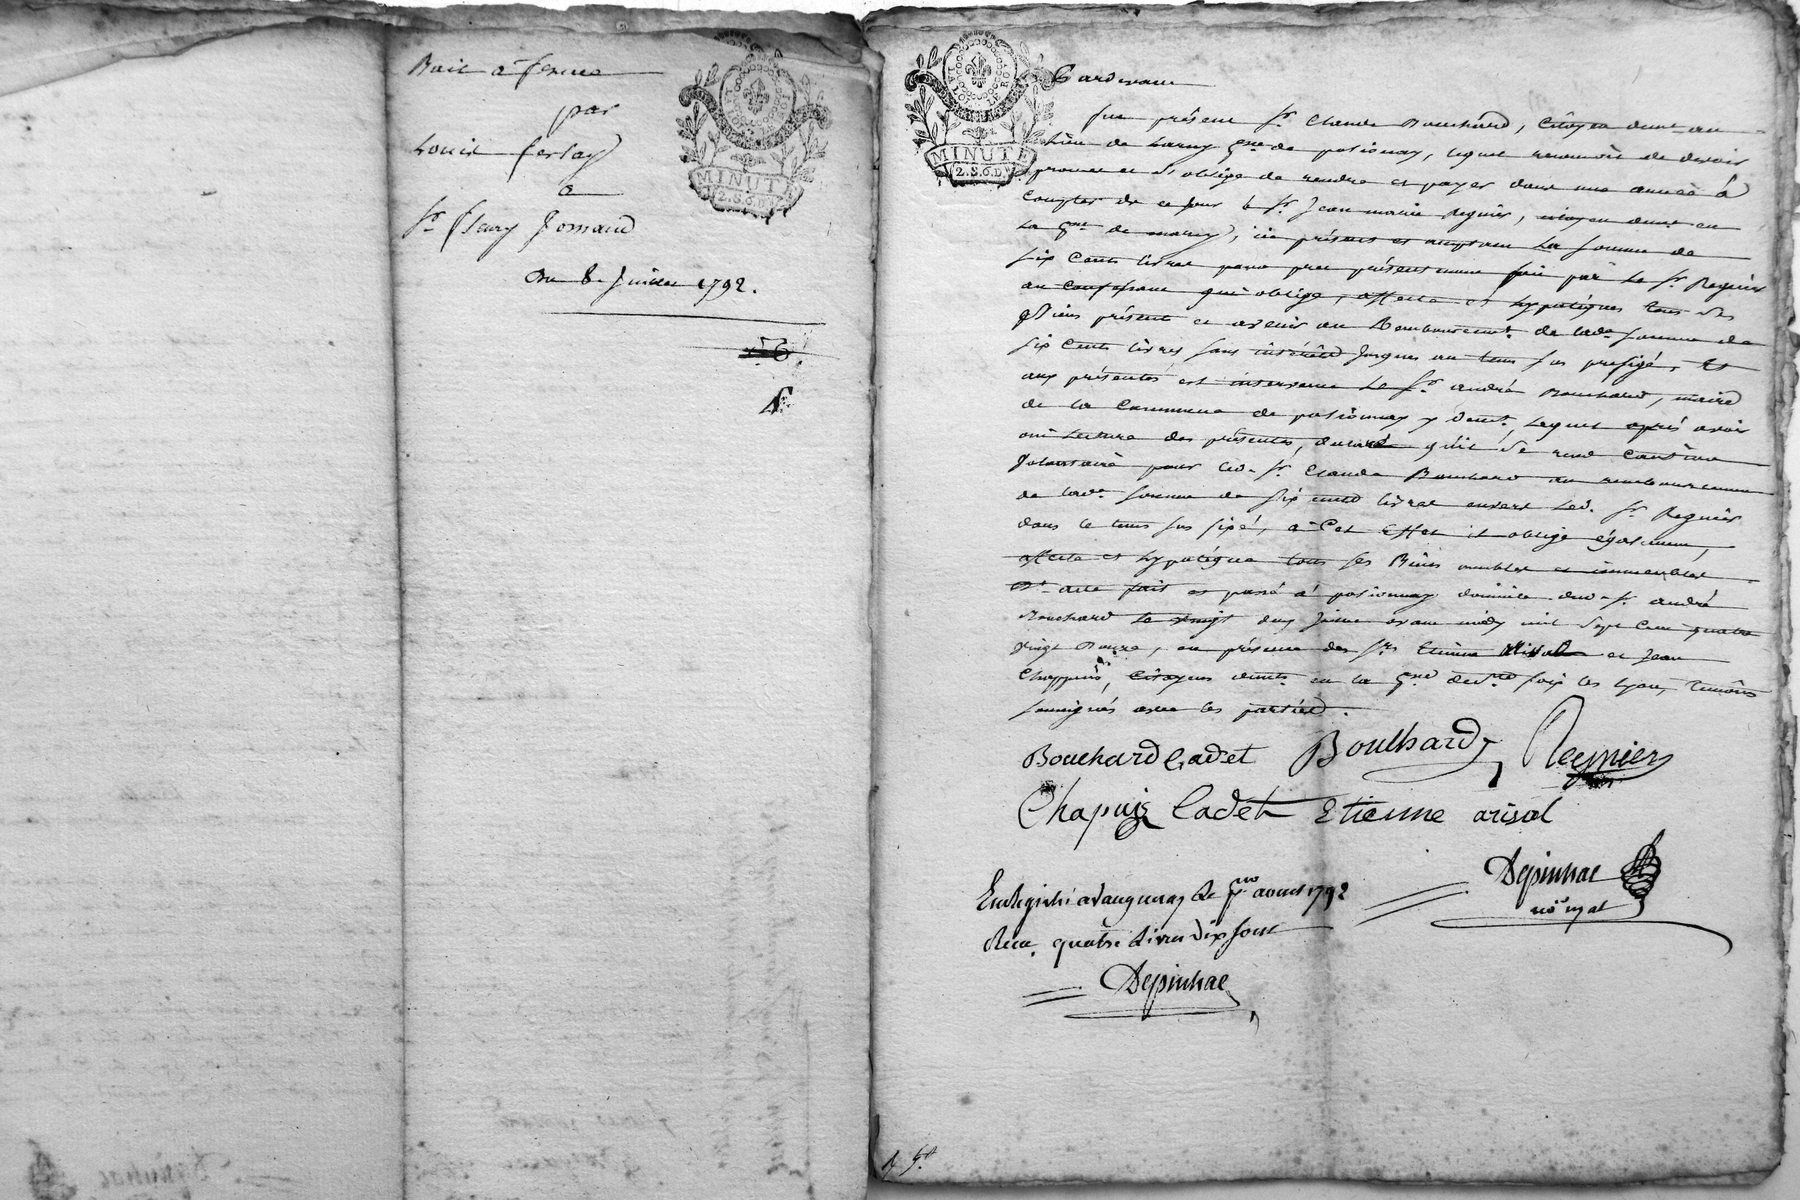 Bail à ferme
par
Louis ferlay
a
Sr fleury Jomard
Du 8. Juillet 1792.
MINUTE
2.S.6.D
LA LOI LE ROI
MINUTE
2.S.6.D
Pardevant
fut présent Sr Claude Bouchard, Citoyen demt au
lieu de Larny de polionay, lequel reconnoit de devoir
promet et s'oblige de rendre et payer dans une année à
Compter de ce jour à Sr Jean marie Regnier, citoyen demt en
la de marcy, ici présent et acceptant La somme de
six Cents livres pour pret présentement fait par Le Sr Regnier
au Confessant qui oblige, affecte et hypotéque tous ses
Biens présents et avenir au Remboursemt de lade somme de
six Cents livres sans intérêts jusques au tems sus préfigé, Et
aux présentes est intervenu Le Sr andré Bouchard, maire
de la Commune de polionnay y demt, Lequel après avoir
oui Lecture des présentes, déclaré qu'il se rend Caution
volontaire pour led. Sr Claude Bouchard au remboursement
de lade somme de six cents livres envers Led. Sr Regnier
dans le tems sus fixé, à Cet effet il oblige également,
affecte et hypotéque tous ses Biens meubles et immeubles
acte fait et passé à polionnay domicile dud. Sr andré
Bouchard Le vingt deux Juin avant midy mil sept Cent quatre
vingt Douze, en présence des Srs Etienne et Jean
Chappuis, Citoyens demts en la de ste foix les Lyon, Temoins
soussignés avec les parties.
Bouchard Cadet Bouchard Regnier
Chapuis Cadet Etienne arisol
Depinhac
nore royal
Enregistré a vaugneray Le pr aoust 1792
Recu quatre Livres dix sous
Depinhac